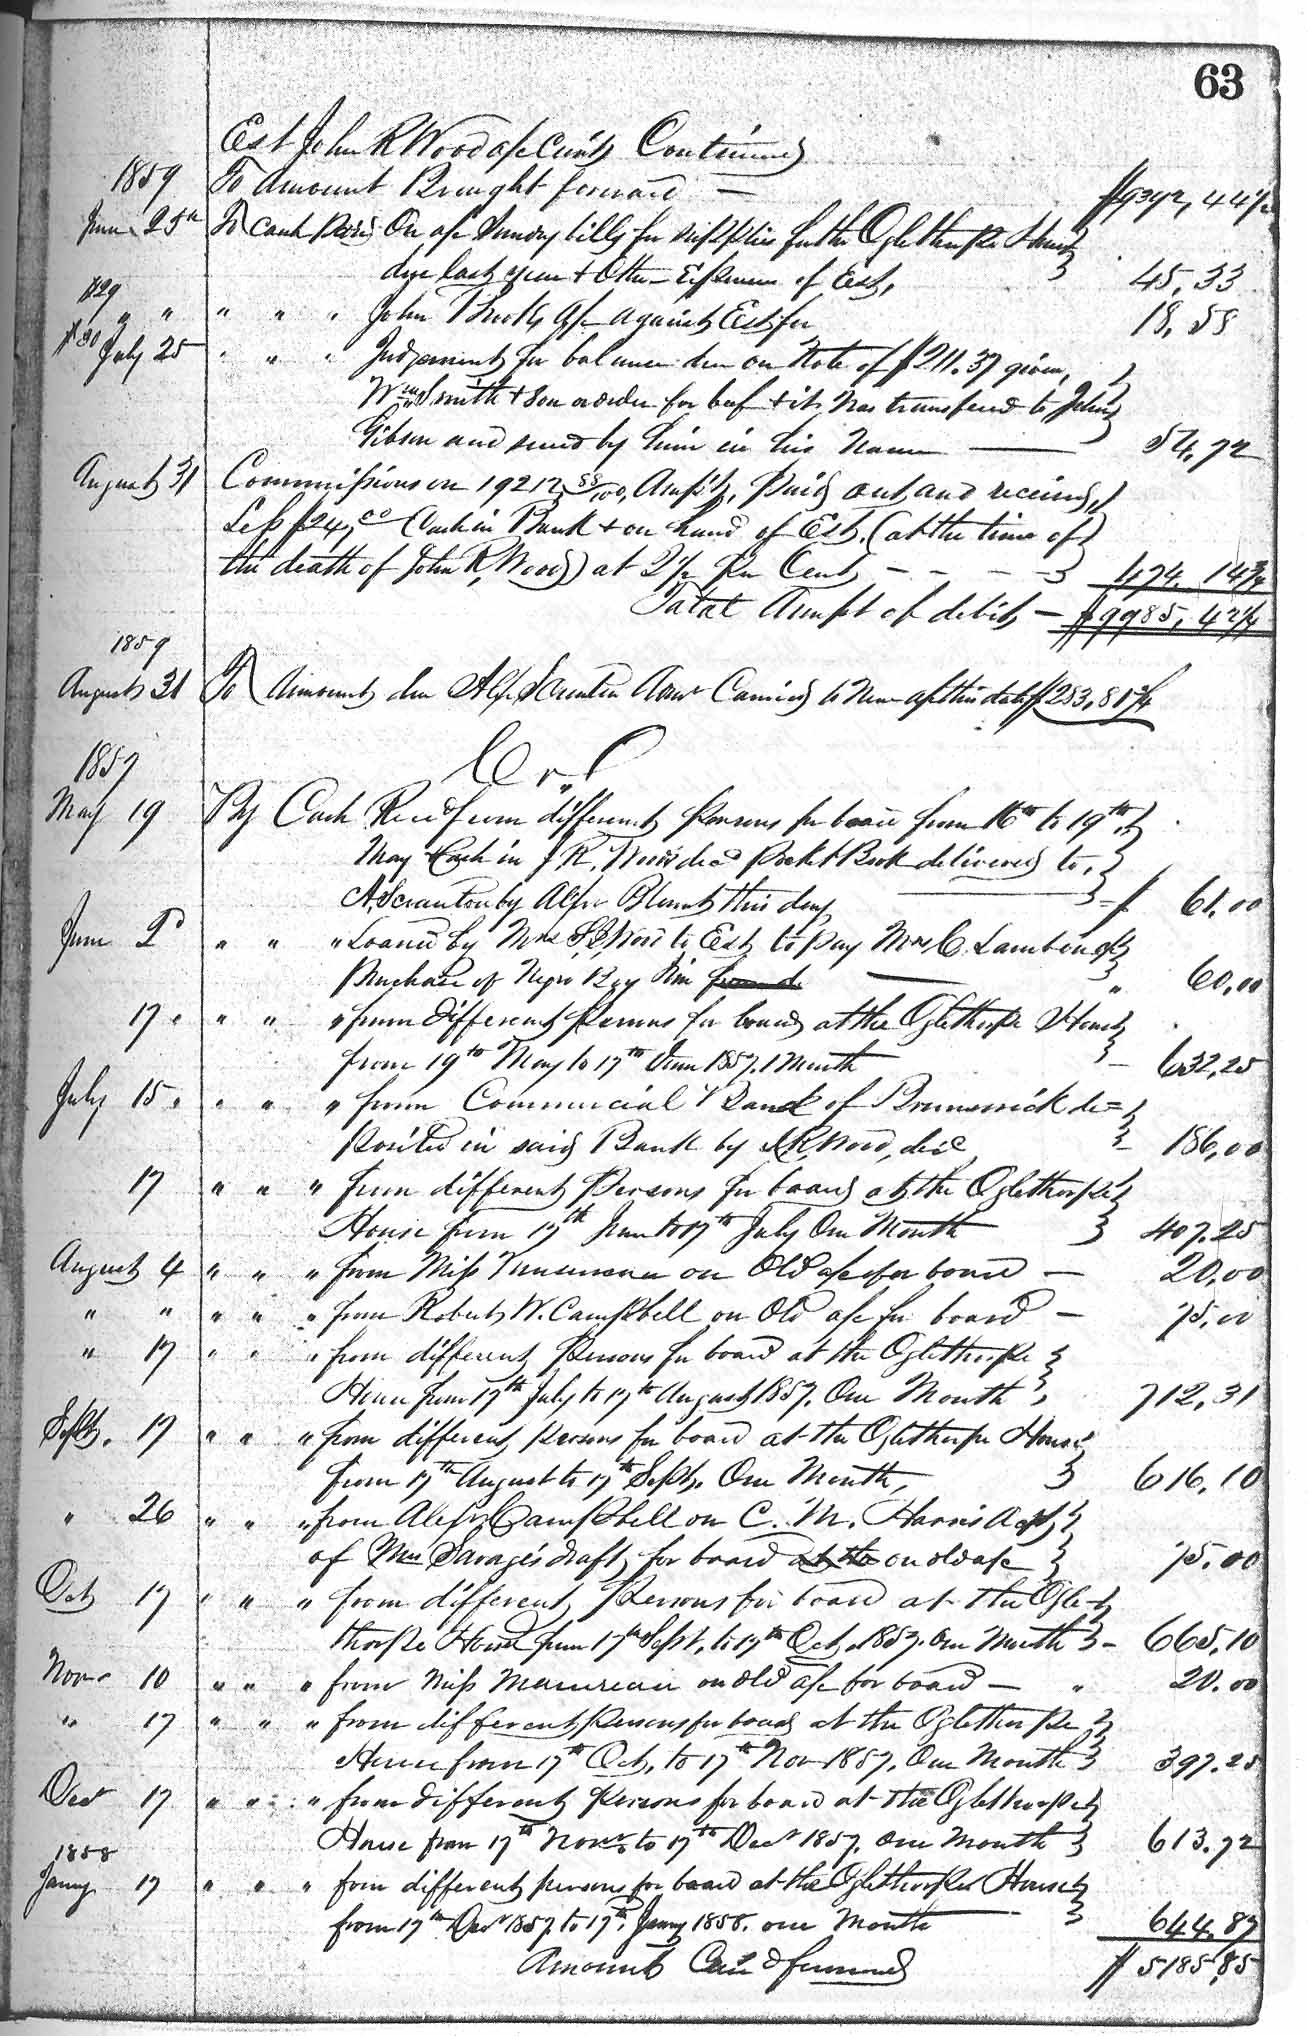 63
Est John R Wood a/c Cur't Continued
1859 To Amount Brought forward — $9392,44 1/2
June 25th To Cash Paid On a/c Sundry bills for supplies for the Oglethorpe House
due last year & Other Expenses of Est, 45,33
#29 " " " " " John Brooks a/c against Est for 18,58
#30 July 25 " " " Judgement for balance due on Note of $211.37 given,
Wm Smith & Son order for beef & it was transferred to John
Gibson and sued by him in his Name — 54,72
August 31 Commissions on 19212 58/100, Am't, Paid out and received,
Less $24,00 Cash in Bank & on hand of Est. (at the time of
the death of John R, Wood) at 2 1/2 Per Cent — — — 474, 14 3/4
Total Amount of debits — $9985, 42 1/4
1859
August 31 To Amount due Alex Scranton Admr Carried to New a/c this date $283,81 3/4
Cr.
1857
May 19 By Cash Rec'd from different Persons for board from 16th to 19th
May & Cash in J R, Wood's dec'd Pocket Book delivered to,
A, Scranton by Alexr Blount this day, — $ 61.00
June 2d " " " Loaned by Mrs S B, Wood to Est, to pay Mrs C. Lamb on a/c
Purchase of Negro Boy Jim — " 60,00
17 " " " " from different Persons for board at the Oglethorpe House
from 19th May to 17th June 1857, 1 Month — 632,25
July 15 " " " " from Commercial Bank of Brunswick de=
posited in said Bank by J R, Wood, dec'd 186,00
17 " " " from different Persons for board at the Oglethorpe
House from 17th June to 17th July One Month 407.25
August 4 " " " from Miss on Old a/c for board — 20,00
" " " " " from Robert W. Campbell on Old a/c for board — 75,00
" 17 " " " from different Persons for board at the Oglethorpe
House from 17th July to 17th August 1857, One Month 712,31
Sept, 17 " " " from different persons for board at the Oglethorpe House
from 17th August to 17th Sept, One Month, 616,10
" 26 " " " from Alexr Campbell on C. M. Harris Acpt,
of Mrs Savage's draft, for board at the on old a/c 75,00
Oct 17 " " " from different, Persons for board at the Ogle-
thorpe House from 17th Sept, to 17th Oct, 1857. One Month — 665,10
Nov. 10 " " " from Miss on old a/c for board — " 20.00
" 17 " " " from different persons for board at the Oglethorpe
House from 17th Oct, to 17th Nov 1857, One Month 397.25
Decr 17 " " " from different Persons for board at the Oglethorpe
House from 17th Novr, to 17th Decr 1857, One Month 613.72
1858
Jany 17 " " " from different persons for board at the Oglethorpe House
from 17th Decr 1857, to 17th, Jany 1858. one Month 644,87
Amount Car'd forward $5185,85